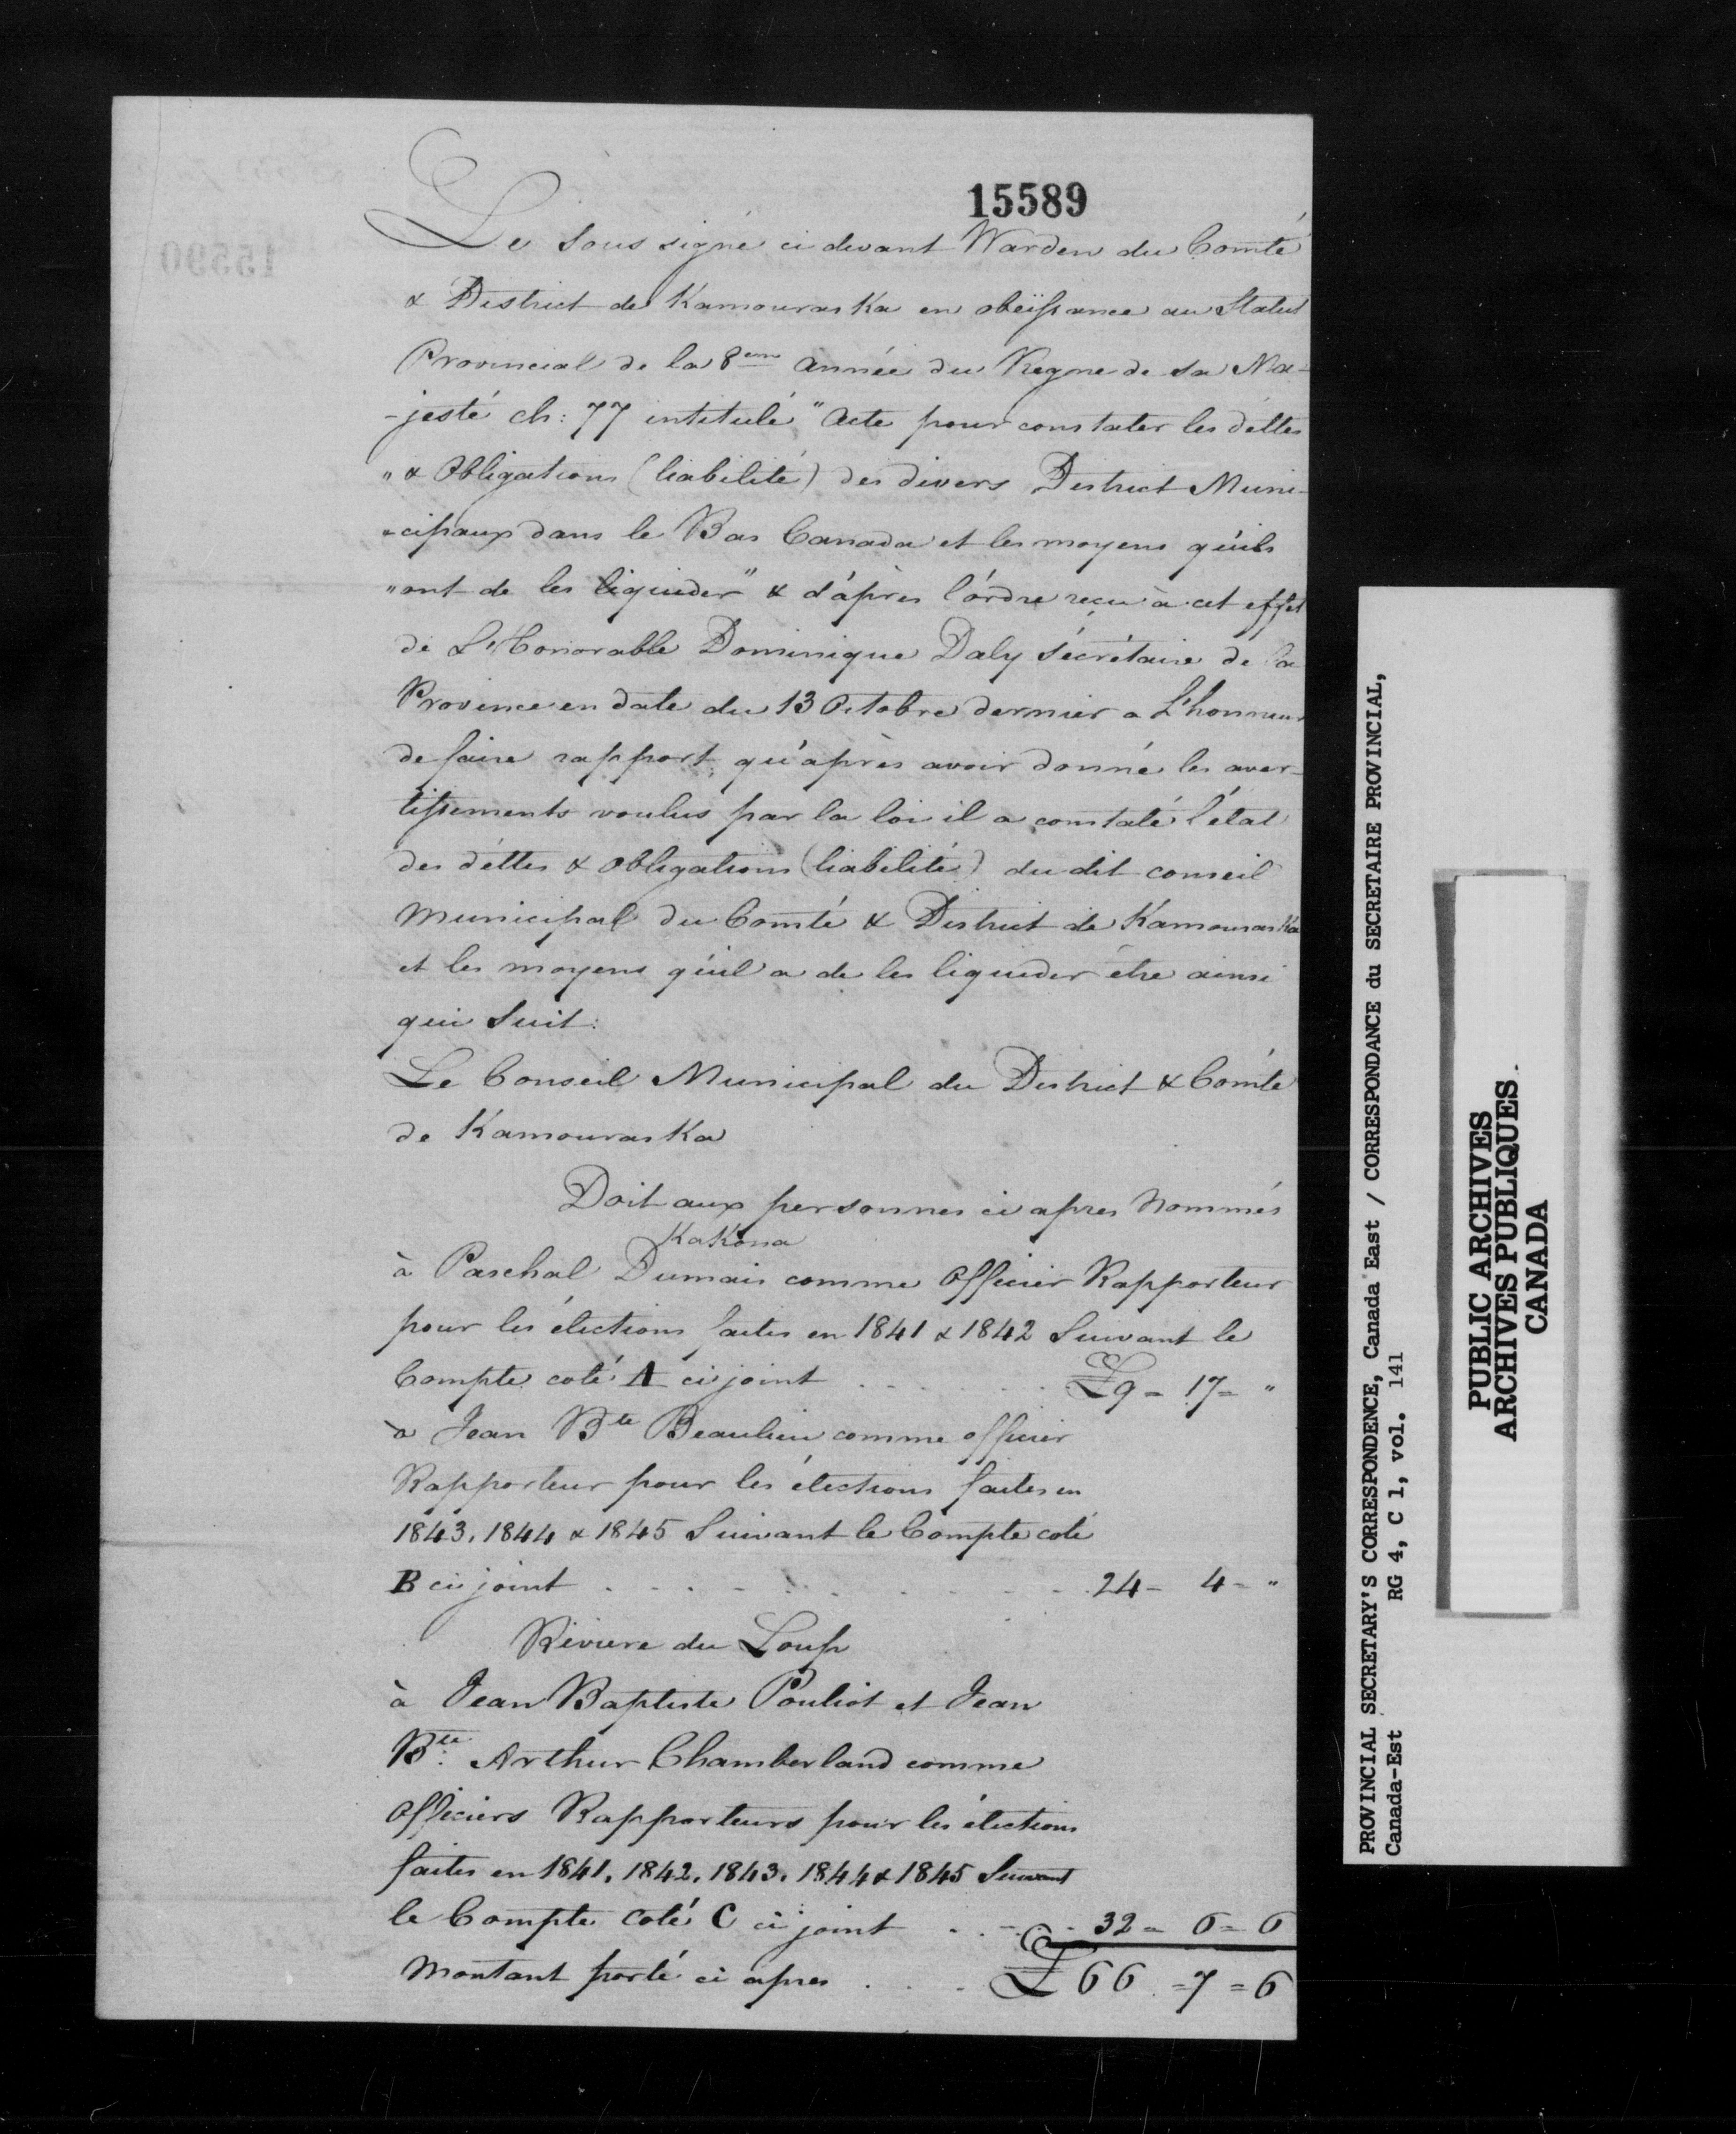 15589
Le Sous signé ci devant Warden du Comté
& District de Kamouraska en obéissance au Statut
Provincial de la 8eme année du Regne de sa Ma-
-jesté ch: 77 intitulé "Acte pour constater les déttes
" & Obligations (liabilité) des divers District Muni-
-cipaux dans le Bas Canada et les moyens qu'ils
" ont de les liquider" & d'àprès l'órdre reçu à cet effet
de L'Honorable Dominique Daly Sécrétaire de la
Province en date du 13 Octobre dernier a L'honneur
de faire rapport, qu'après avoir donné les aver-
tissements voulus par la loi il a constaté l'état
des déttes & obligations (liabilité) du dit conseil
Municipal du Comté & District de Kamouraska
et les moyens qu'il a de les liquider être ainsi
qui Suit:
Le Conseil Municipal du District & Comté
de Kamouraska
Doit aux personnes ci apres Nommés
KaKona
à Paschal Dumais comme Officier Rapporteur
pour les élections faites en 1841 & 1842 Suivant le
Compte coté A ci joint . . . . . £9 - 17 = "
à Jean Bte Beaulieu comme officier
Rapporteur pour les élections faites en
1843, 1844 & 1845 Suivant le Compte coté
B ci joint . . . . . . . . . 24 - 4 - "
Riviere du Loup
à Jean Baptiste Pouliot et Jean
Bte: Arthur Chamberland comme
Officiers Rapporteurs pour les élections
faites en 1841, 1842, 1843, 1844 & 1845 Suivant
le Compte Coté C ci joint . . . . 32 = 6 = 6
Montant porté ci apres . . . £66 = 7 = 6
15590
PROVINCIAL SECRETARY'S CORRESPONDENCE, Canada East / CORRESPONDANCE du SECRETAIRE PROVINCIAL,
Canada-Est RG 4, C 1, vol. 141
PUBLIC ARCHIVES
ARCHIVES PUBLIQUES
CANADA